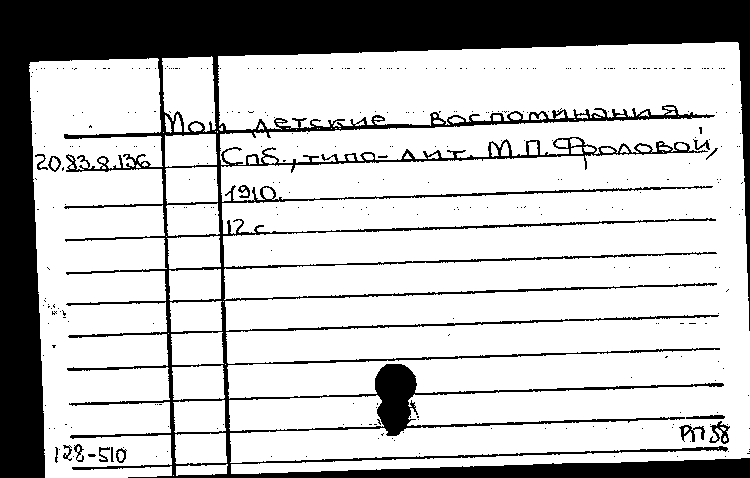 Мои детские воспоминания.
20.83.8.136 Спб., типо-лит. М.П.Фроловой,
1910.
12 с.
128-510 РП 58